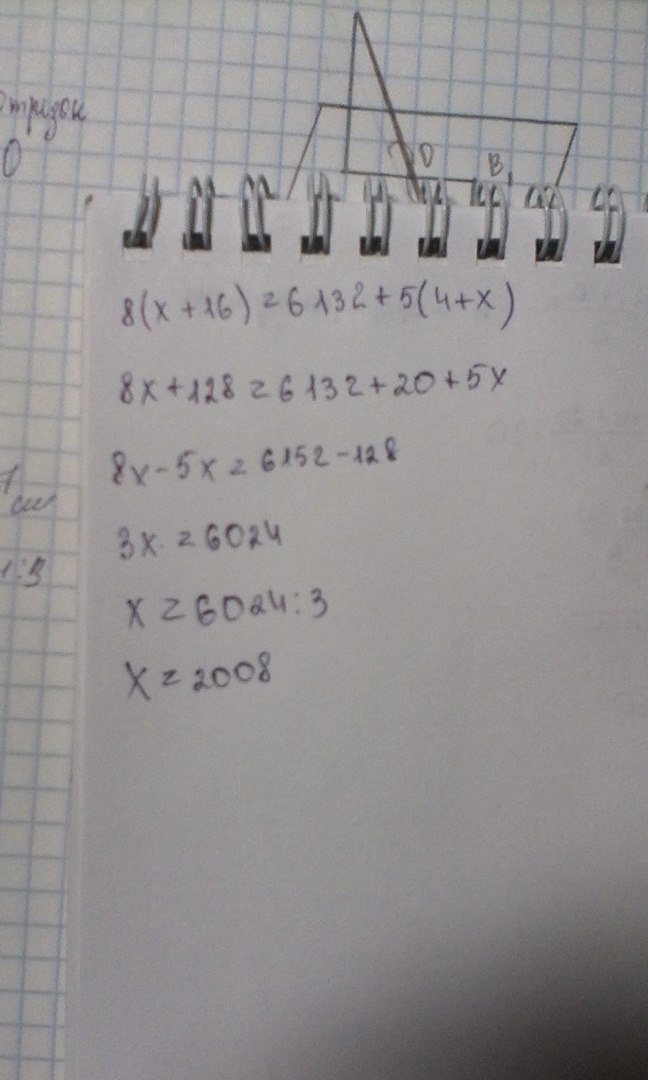 Отрезок
0
D
B₁
8(x+16)=6132+5(4+x)
8x+128=6132+20+5x
8x-5x=6152-128
3x=6024
x=6024:3
x=2008